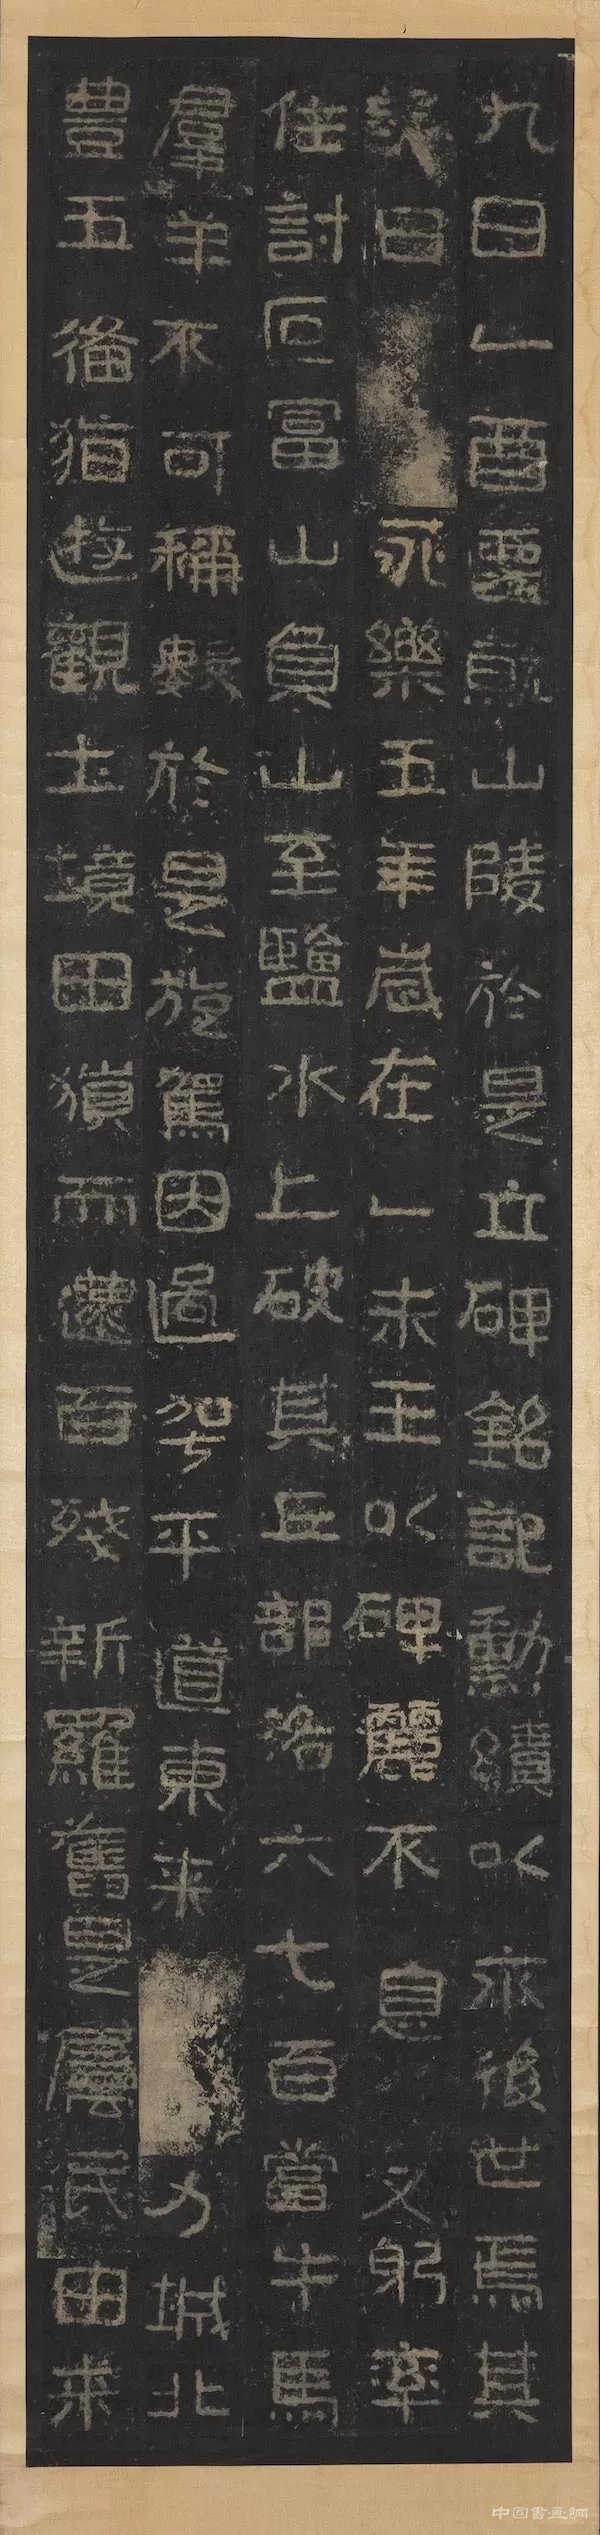 九日乙酉遷就山陵於是立碑銘記勳績以示後世焉其
詞曰永樂五年歲在乙未王以碑麗不息又躬率
住討叵富山負山至鹽水上破其丘部洛六七百當牛馬
羣羊不可稱數於是旋駕因過平道東来力城北
豊五俻猶遊觀土境田獵而還百殘新羅舊是屬民由来
中国書画網